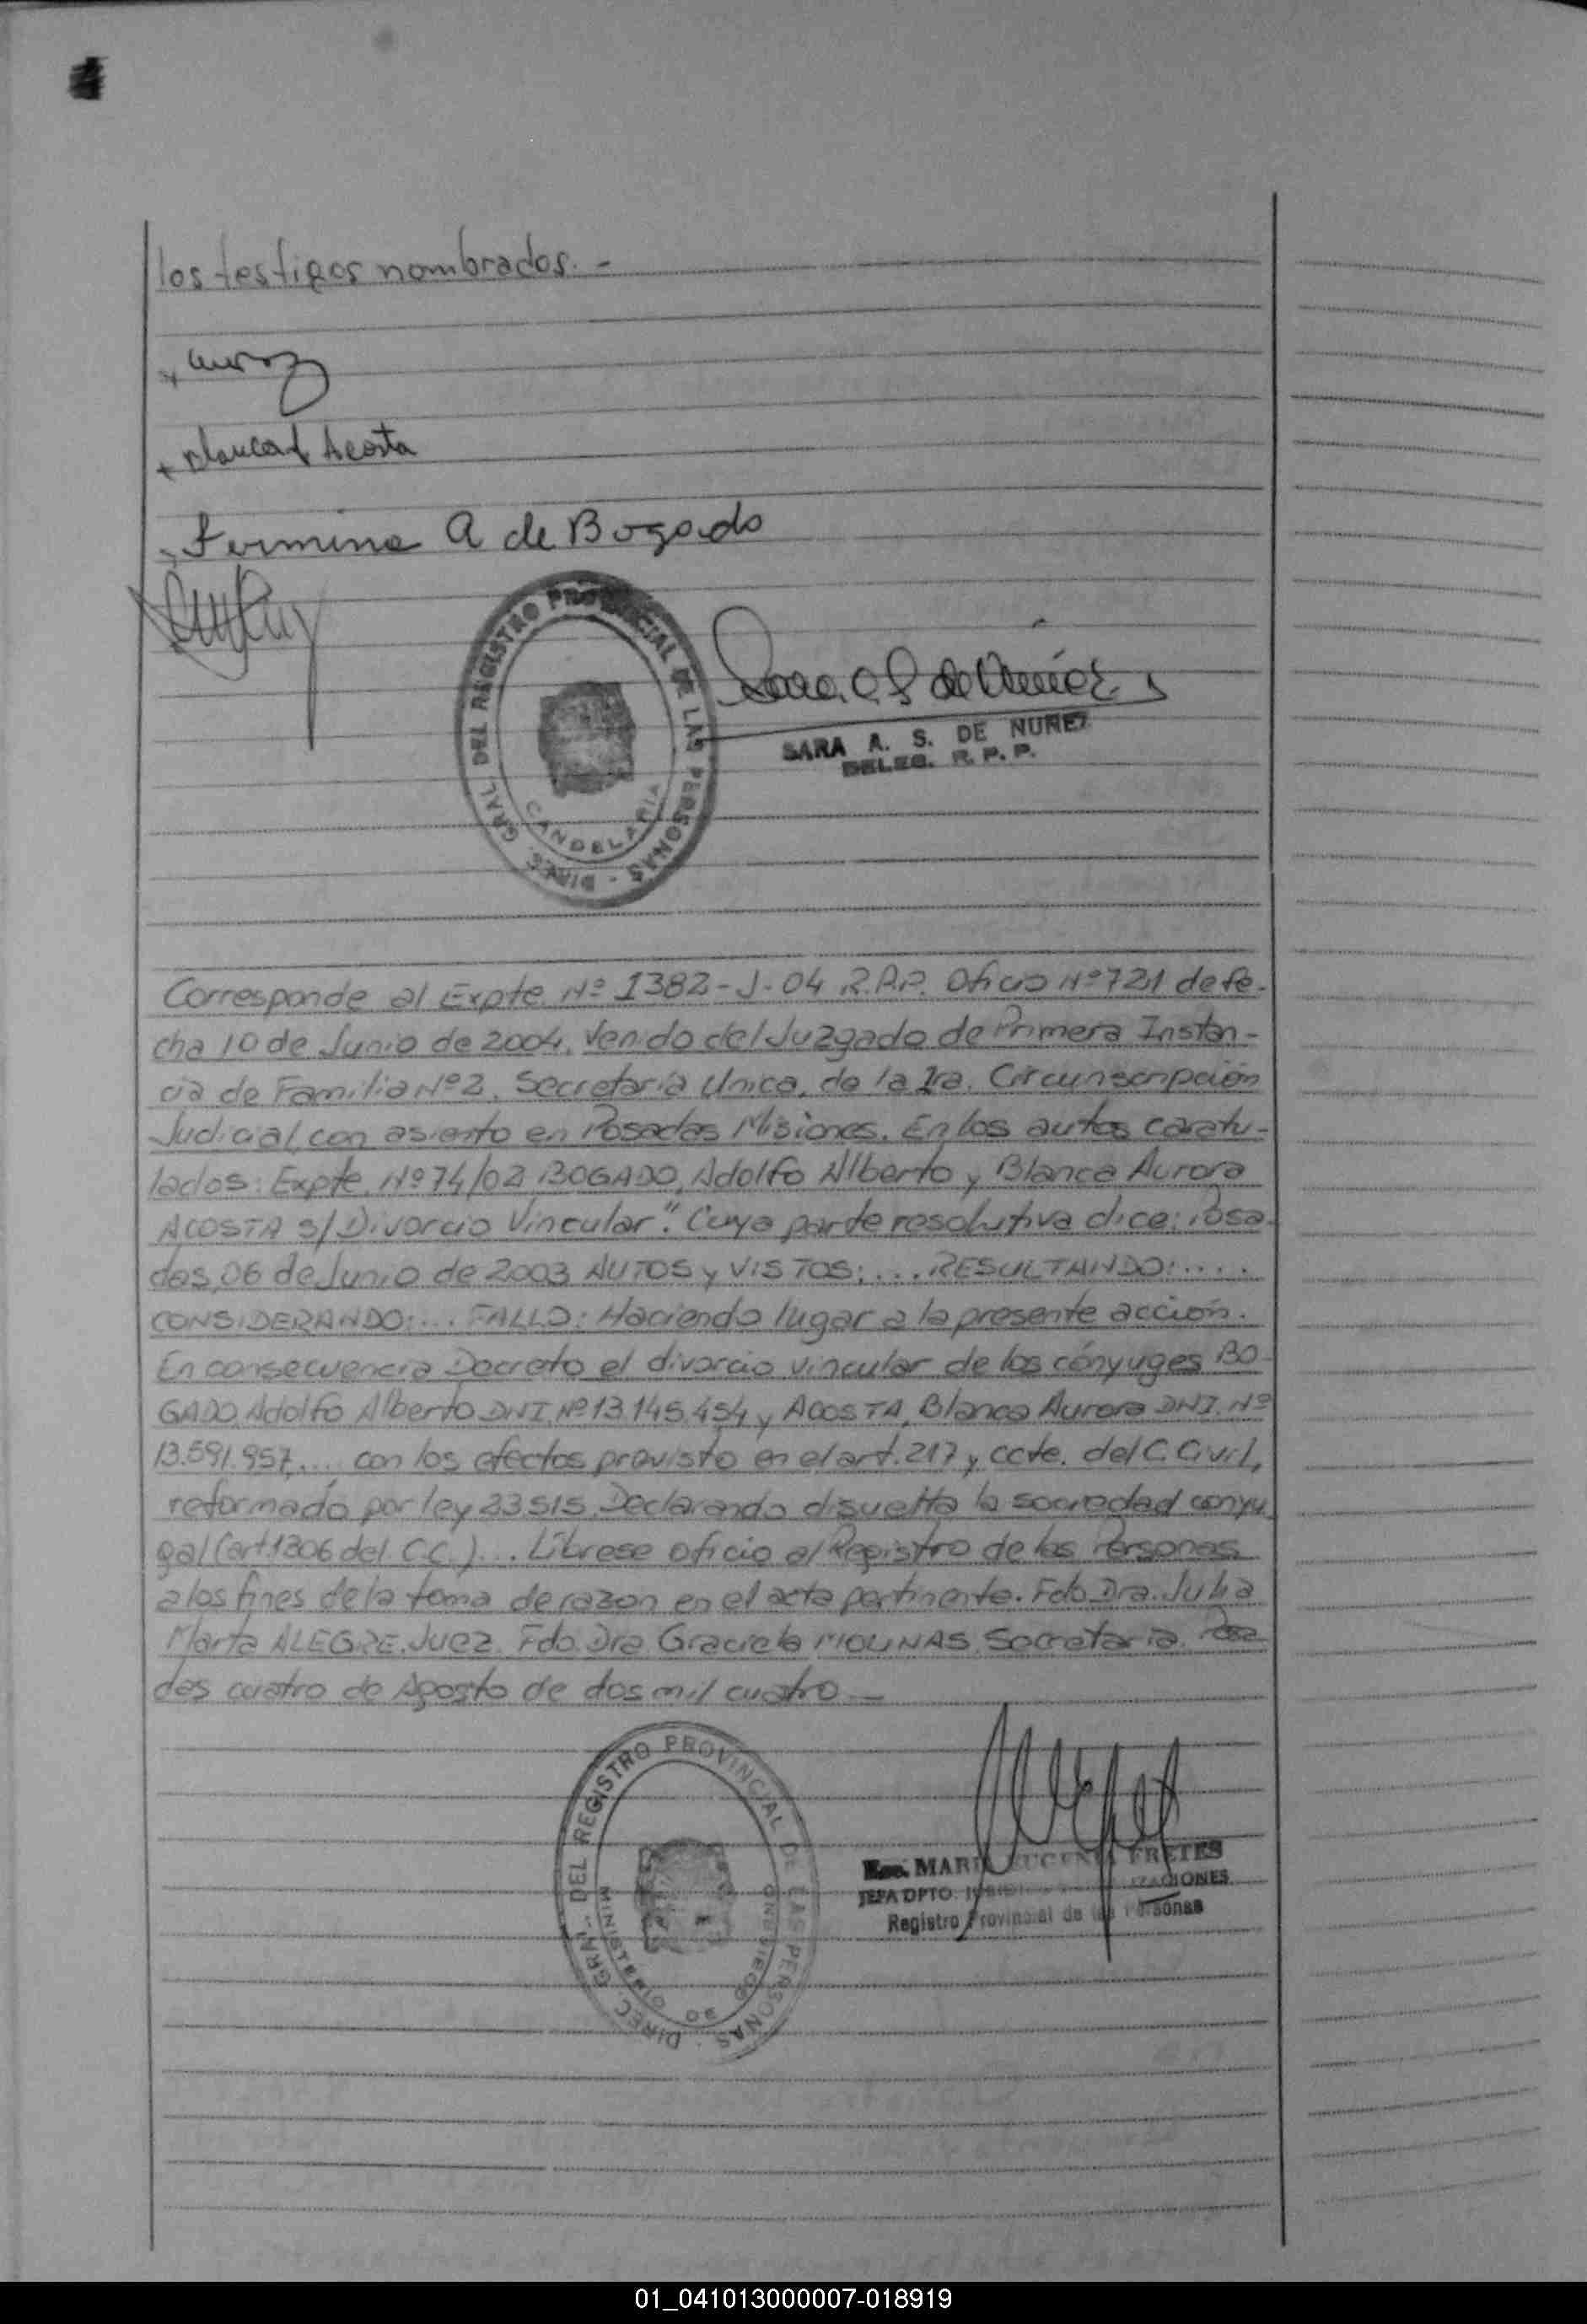 los testigos nombrados. -
Blanca A Acosta
Fermina A de Bogado
DIREC. GRAL. DEL REGISTRO PROVINCIAL DE LAS PERSONAS -
CANDELARIA
SARA A. S. DE NUÑEZ
DELEG. R. P. P.
Corresponde al Expte. Nº 1382-J-04 R.P.P. Oficio Nº 721 de fe-
cha 10 de Junio de 2004. Venido del Juzgado de Primera Instan-
cia de Familia Nº 2, Secretaría Unica, de la 1ra. Circunscripción
Judicial, con asiento en Posadas Misiones. En los autos caratu-
lados: Expte. Nº 74/02 BOGADO, Adolfo Alberto y Blanca Aurora
ACOSTA s/ Divorcio Vincular". Cuya parte resolutiva dice: Posa-
das, 06 de Junio de 2003 AUTOS y VISTOS:... RESULTANDO:....
CONSIDERANDO:... FALLO: Haciendo lugar a la presente acción.
En consecuencia Decreto el divorcio vincular de los cónyuges BO-
GADO, Adolfo Alberto DNI. Nº 13.145.454 y ACOSTA, Blanca Aurora DNI. Nº
13.591.957.... con los efectos provisto en el art. 217 y ccte. del C. Civil,
reformado por ley 23.515. Declarando disuelta la sociedad conyu
gal (art. 1306 del C.C.)... Líbrese oficio al Registro de las Personas
a los fines de la toma de razon en el acta pertinente. Fdo. Dra. Julia
Marta ALEGRE. Juez. Fdo. Dra. Graciela MOLINAS. Secretaria. Posa
das cuatro de Agosto de dos mil cuatro. —
DIREC. GRAL. DEL REGISTRO PROVINCIAL DE LAS PERSONAS
MINISTERIO DE GOBIERNO
MARIA EUGENIA FRETES
JEFA DPTO.
Registro Provincial de las Personas
01_041013000007-018919